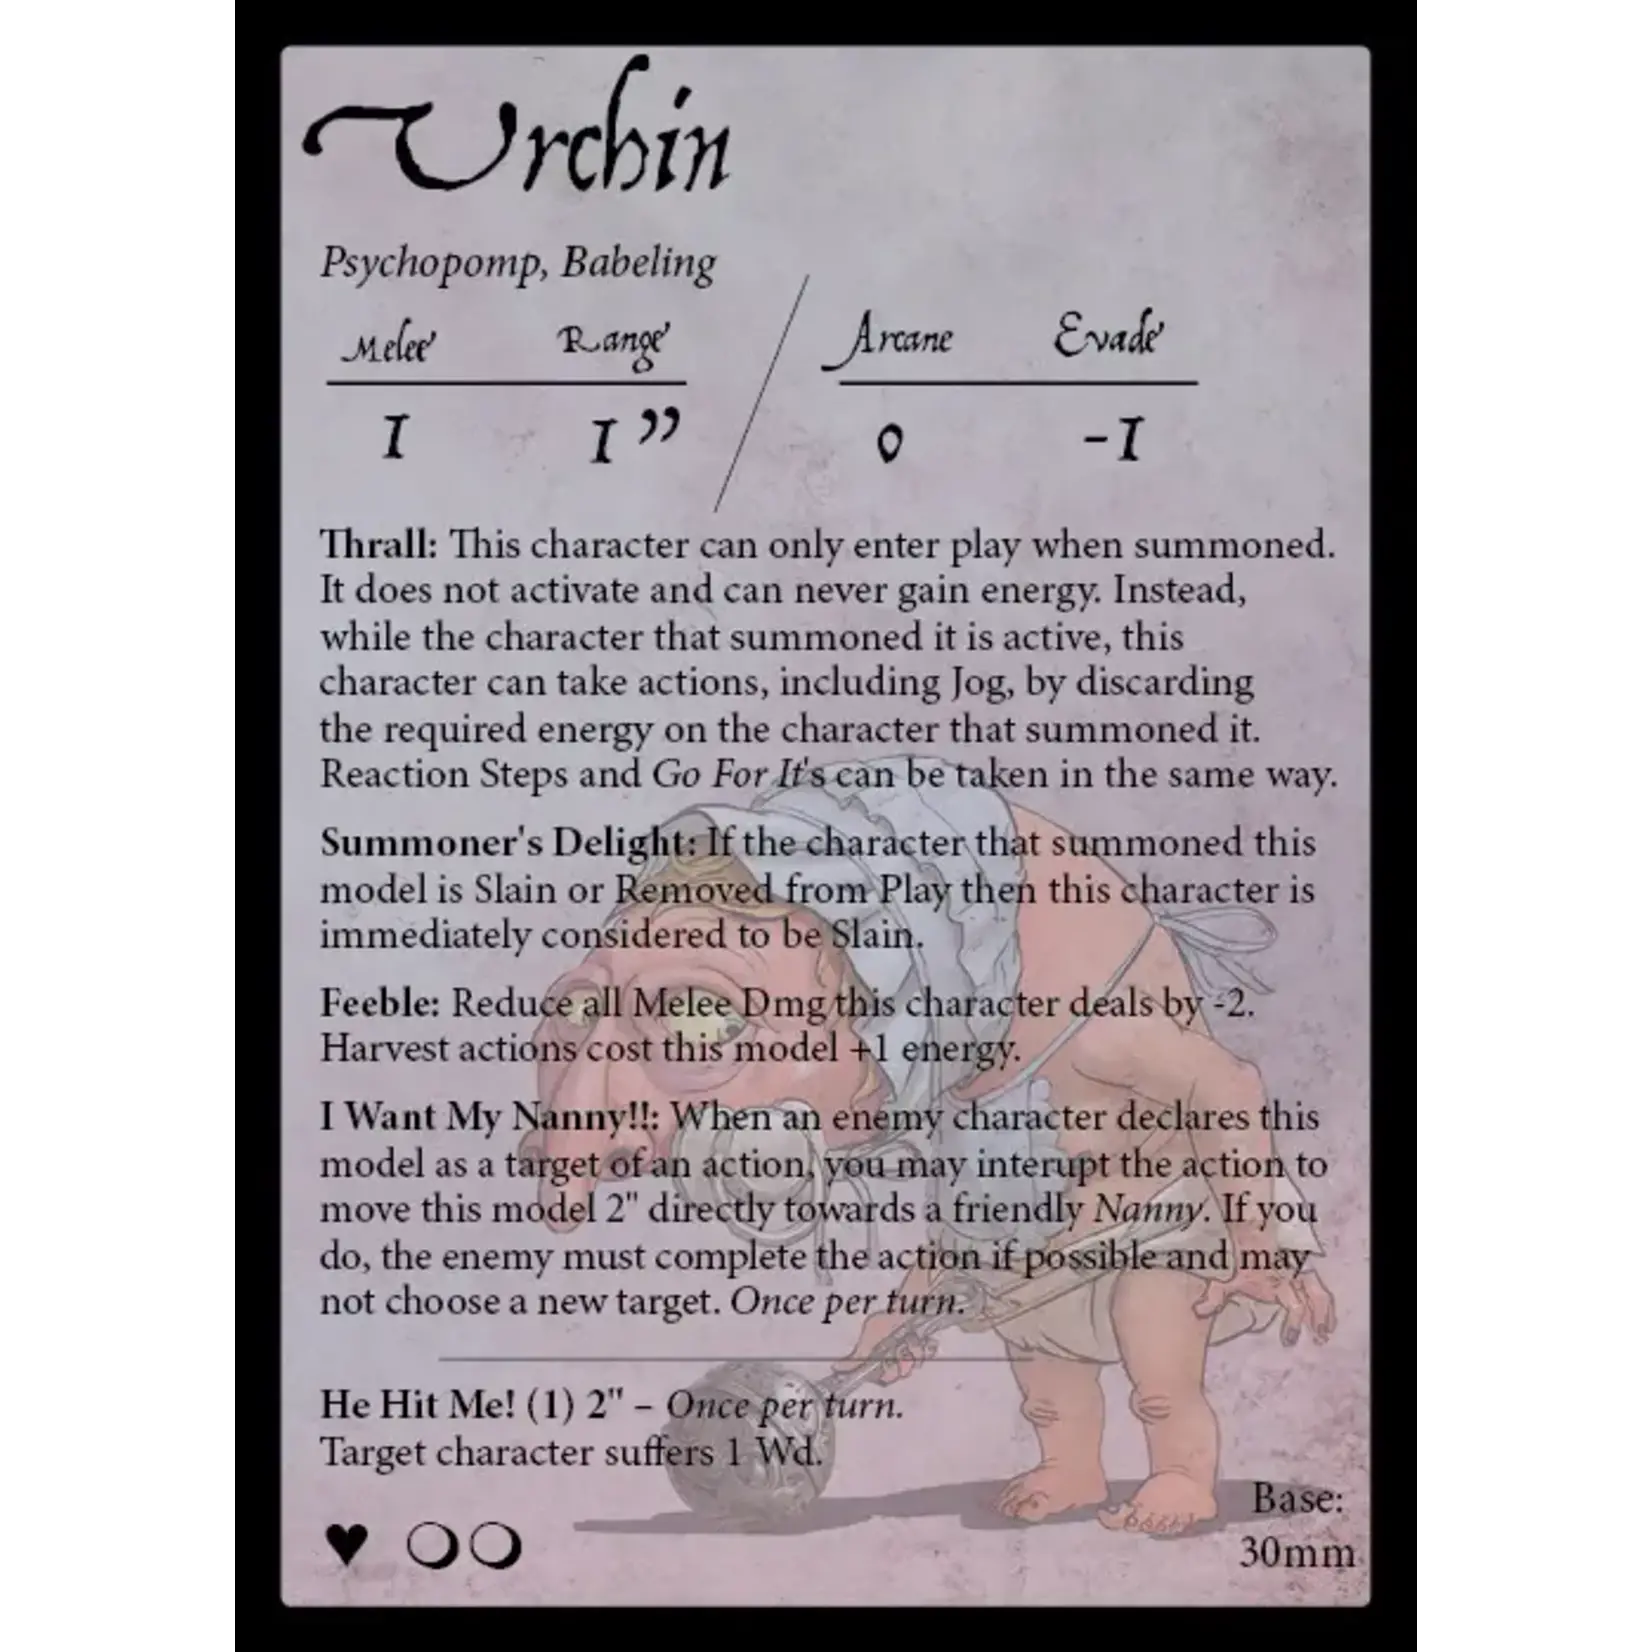 Urchin
Psychopomp, Babeling
Melee Range Arcane Evade
1 1” 0 -1
Thrall: This character can only enter play when summoned.
It does not activate and can never gain energy. Instead,
while the character that summoned it is active, this
character can take actions, including Jog, by discarding
the required energy on the character that summoned it.
Reaction Steps and Go For It's can be taken in the same way.
Summoner's Delight: If the character that summoned this
model is Slain or Removed from Play then this character is
immediately considered to be Slain.
Feeble: Reduce all Melee Dmg this character deals by -2.
Harvest actions cost this model +1 energy.
I Want My Nanny!!: When an enemy character declares this
model as a target of an action, you may interupt the action to
move this model 2" directly towards a friendly Nanny. If you
do, the enemy must complete the action if possible and may
not choose a new target. Once per turn.
He Hit Me! (1) 2" – Once per turn.
Target character suffers 1 Wd.
Base:
30mm